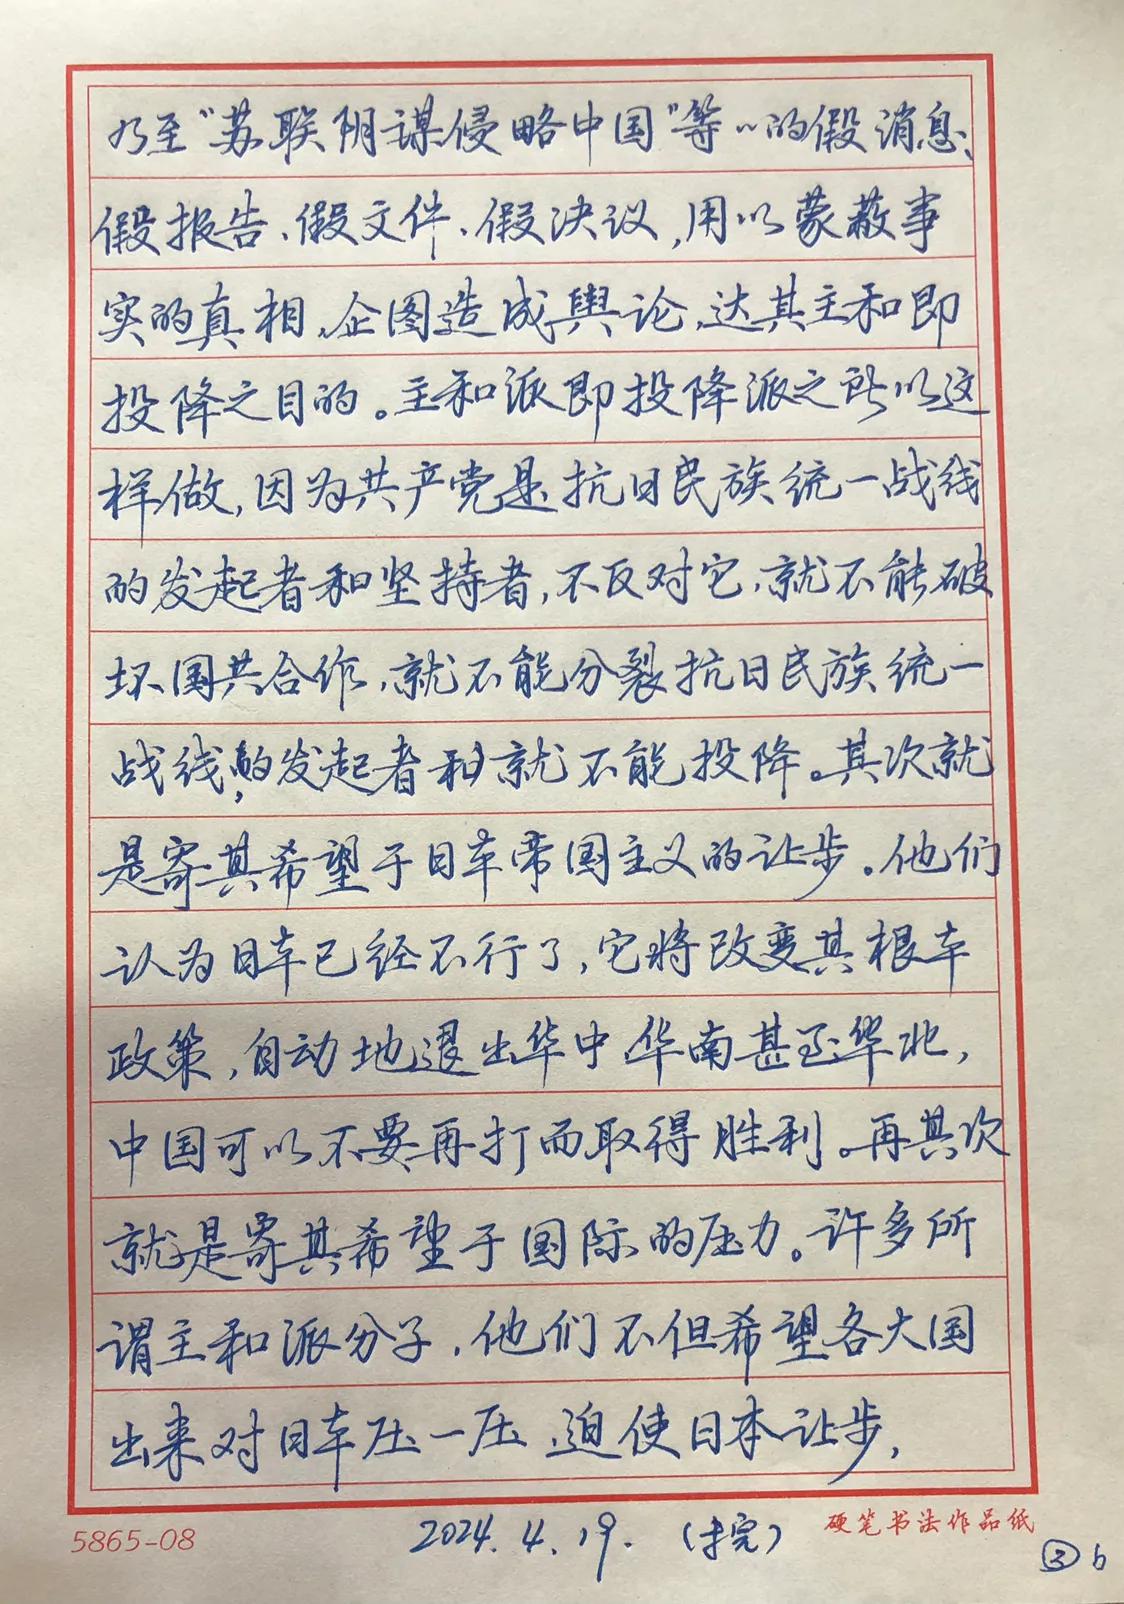 乃至“苏联阴谋侵略中国”等……的假消息、
假报告、假文件、假决议，用以蒙蔽事
实的真相，企图造成舆论，达其主和即
投降之目的。主和派即投降派之所以这
样做，因为共产党是抗日民族统一战线
的发起者和坚持者，不反对它，就不能破
坏国共合作，就不能分裂抗日民族统一
战线，的发起者和就不能投降。其次就
是寄其希望于日本帝国主义的让步。他们
认为日本已经不行了，它将改变其根本
政策，自动地退出华中华南甚至华北，
中国可以不要再打而取得胜利。再其次
就是寄其希望于国际的压力。许多所
谓主和派分子，他们不但希望各大国
出来对日本压一压，迫使日本让步，
5865-08
2024.4.19.（未完）
硬笔书法作品纸
③6